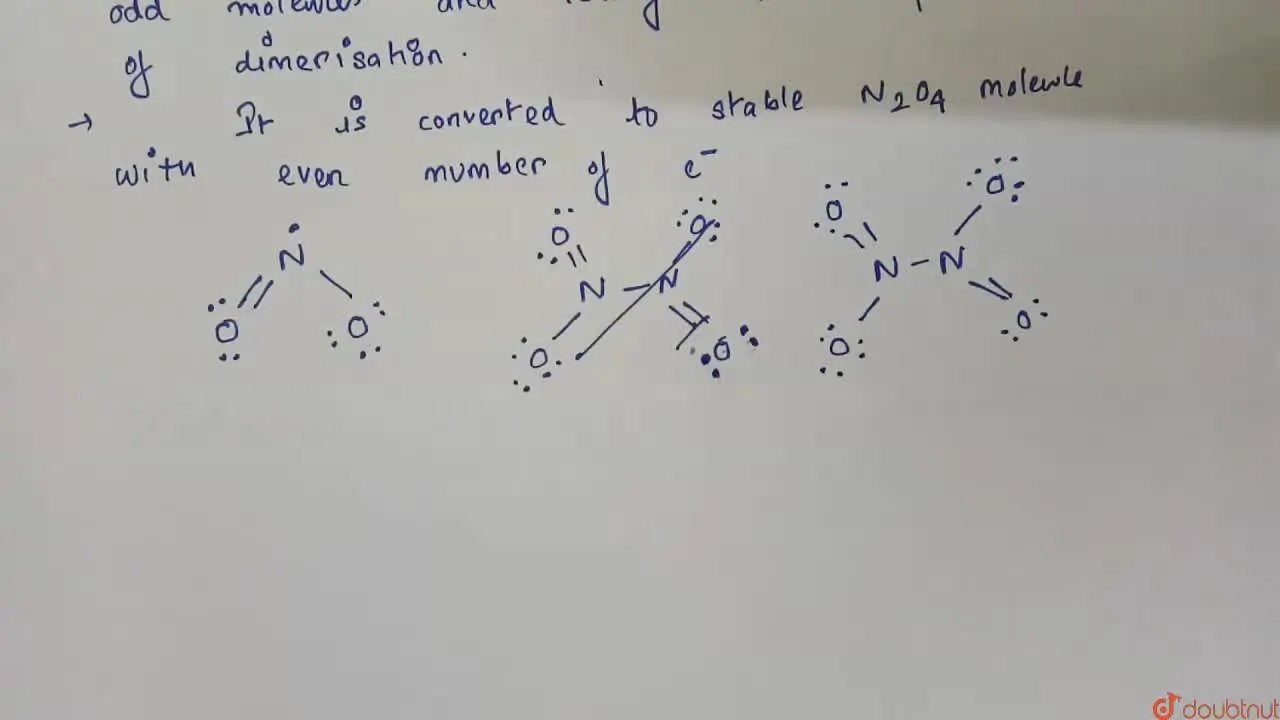 odd molecules and
of dimerisation.
→ It is converted to stable N2O4 molecule
with even number of e⁻
N O O
O N O N O O
O N O N O O
doubtnut